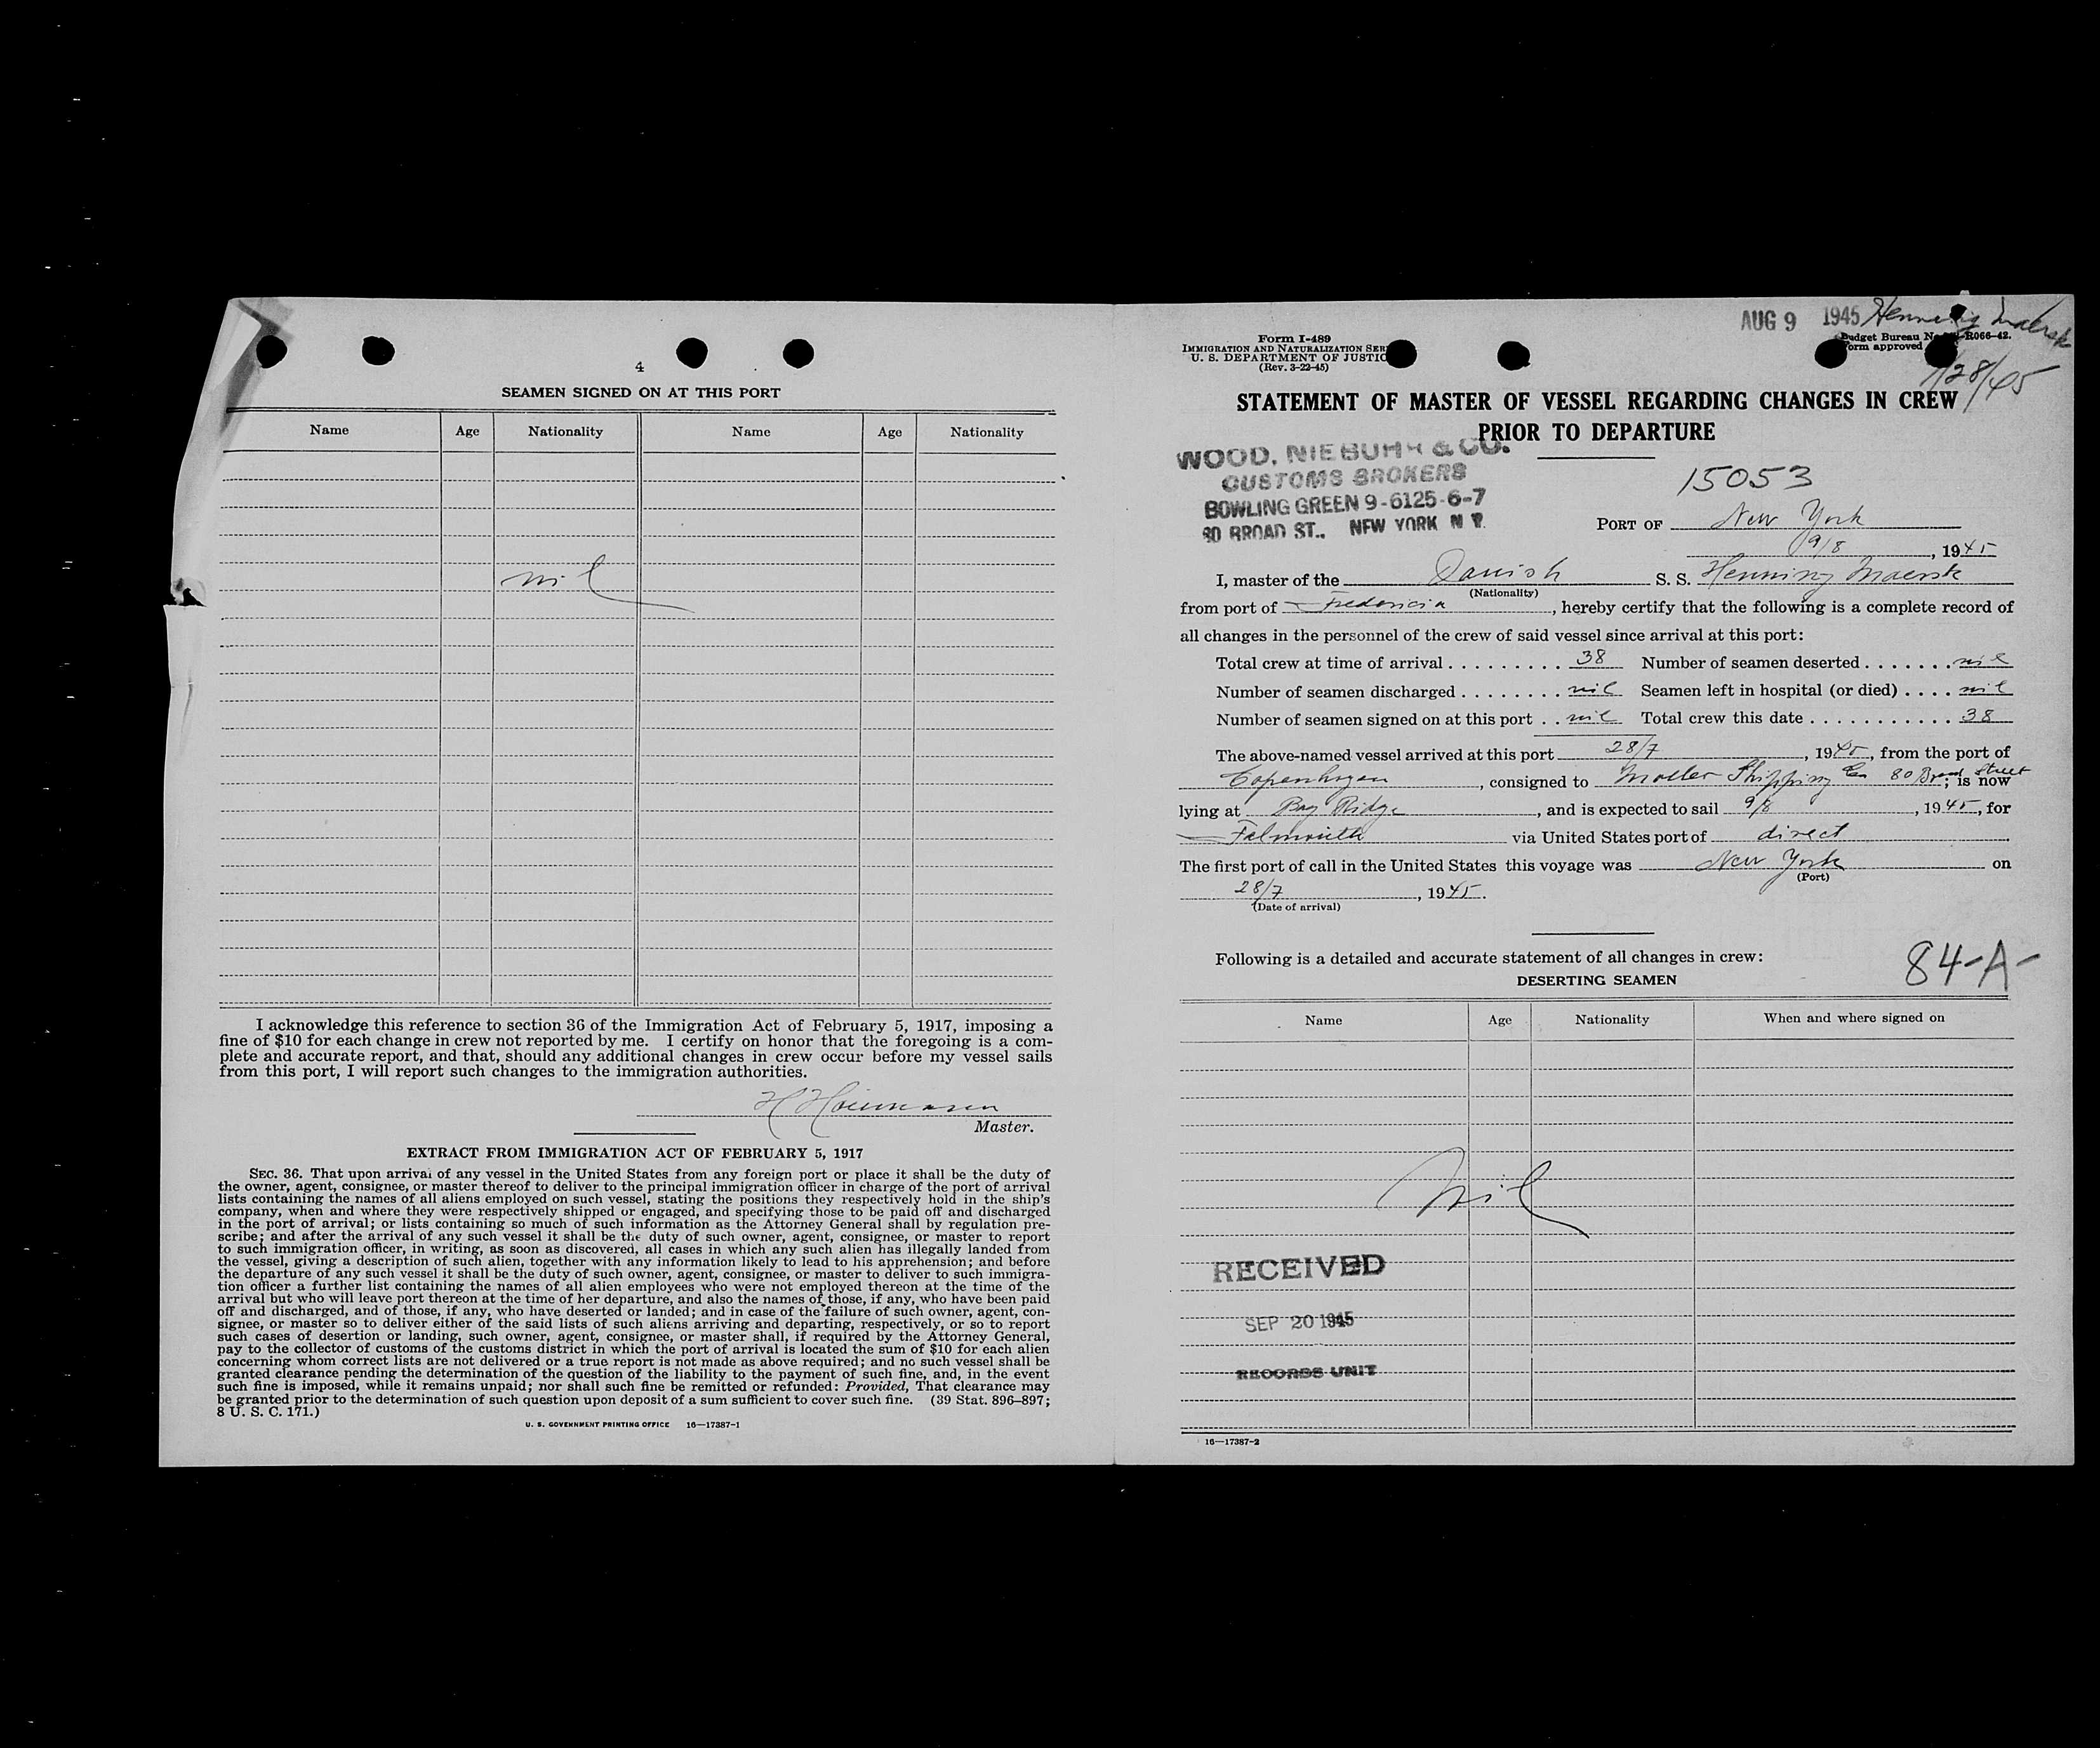 4
SEAMEN SIGNED ON AT THIS PORT
Name Age Nationality Name Age Nationality
nil
I acknowledge this reference to section 36 of the Immigration Act of February 5, 1917, imposing a
fine of $10 for each change in crew not reported by me. I certify on honor that the foregoing is a com-
plete and accurate report, and that, should any additional changes in crew occur before my vessel sails
from this port, I will report such changes to the immigration authorities.
H
Master.
EXTRACT FROM IMMIGRATION ACT OF FEBRUARY 5, 1917
SEC. 36. That upon arrival of any vessel in the United States from any foreign port or place it shall be the duty of
the owner, agent, consignee, or master thereof to deliver to the principal immigration officer in charge of the port of arrival
lists containing the names of all aliens employed on such vessel, stating the positions they respectively hold in the ship's
company, when and where they were respectively shipped or engaged, and specifying those to be paid off and discharged
in the port of arrival; or lists containing so much of such information as the Attorney General shall by regulation pre-
scribe; and after the arrival of any such vessel it shall be the duty of such owner, agent, consignee, or master to report
to such immigration officer, in writing, as soon as discovered, all cases in which any such alien has illegally landed from
the vessel, giving a description of such alien, together with any information likely to lead to his apprehension; and before
the departure of any such vessel it shall be the duty of such owner, agent, consignee, or master to deliver to such immigra-
tion officer a further list containing the names of all alien employees who were not employed thereon at the time of the
arrival but who will leave port thereon at the time of her departure, and also the names of those, if any, who have been paid
off and discharged, and of those, if any, who have deserted or landed; and in case of the failure of such owner, agent, con-
signee, or master so to deliver either of the said lists of such aliens arriving and departing, respectively, or so to report
such cases of desertion or landing, such owner, agent, consignee, or master shall, if required by the Attorney General,
pay to the collector of customs of the customs district in which the port of arrival is located the sum of $10 for each alien
concerning whom correct lists are not delivered or a true report is not made as above required; and no such vessel shall be
granted clearance pending the determination of the question of the liability to the payment of such fine, and, in the event
such fine is imposed, while it remains unpaid; nor shall such fine be remitted or refunded: Provided, That clearance may
be granted prior to the determination of such question upon deposit of a sum sufficient to cover such fine. (39 Stat. 896–897;
8 U. S. C. 171.)
U. S. GOVERNMENT PRINTING OFFICE 16—17387-1
AUG 9 1945 Henning Maersk
Form I-489
IMMIGRATION AND NATURALIZATION
U. S. DEPARTMENT OF JUSTIC
(Rev. 3-22-45)
Budget Bureau R066-42.
Form approved
7/28/45
STATEMENT OF MASTER OF VESSEL REGARDING CHANGES IN CREW
PRIOR TO DEPARTURE
WOOD, NIEBUHR & CO.
CUSTOMS BROKERS
BOWLING GREEN 9-6125-6-7
80 BROAD ST., NEW YORK N Y.
15053
PORT OF New York
9/8, 1945
I, master of the Danish S. S. Henning Maersk
(Nationality)
from port of Fredericia, hereby certify that the following is a complete record of
all changes in the personnel of the crew of said vessel since arrival at this port:
Total crew at time of arrival . . . . . . . . . . 38 Number of seamen deserted . . . . . . . nil
Number of seamen discharged . . . . . . . . nil Seamen left in hospital (or died) . . . . nil
Number of seamen signed on at this port . . nil Total crew this date . . . . . . . . . . . 38
The above-named vessel arrived at this port 28/7, 1945, from the port of
Copenhagen, consigned to Moller Shipping Co 80 Broad Street; is now
lying at Bay Ridge, and is expected to sail 9/8, 1945, for
Falmouth via United States port of direct
The first port of call in the United States this voyage was New York on
(Port)
28/7, 1945.
(Date of arrival)
Following is a detailed and accurate statement of all changes in crew:
84-A-
DESERTING SEAMEN
Name Age Nationality When and where signed on
Nil
RECEIVED
SEP 20 1945
RECORDS UNIT
16—17387-2